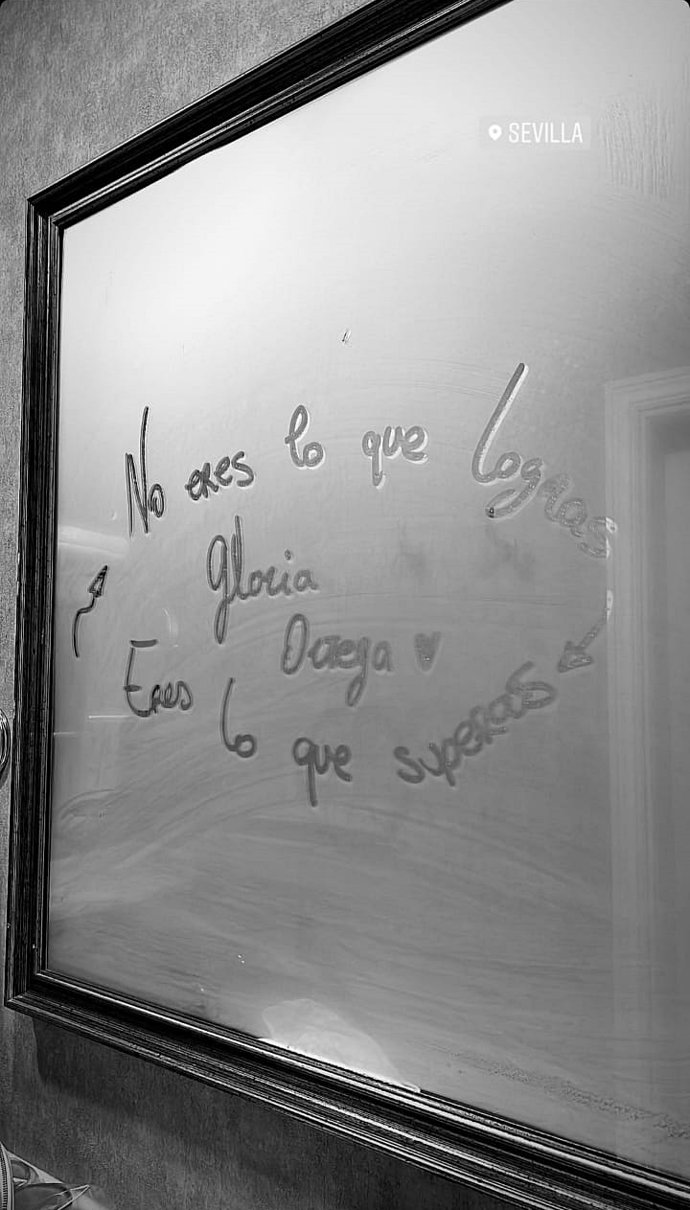 SEVILLA
No eres lo que logras
Gloria
Ortega
Eres lo que superas